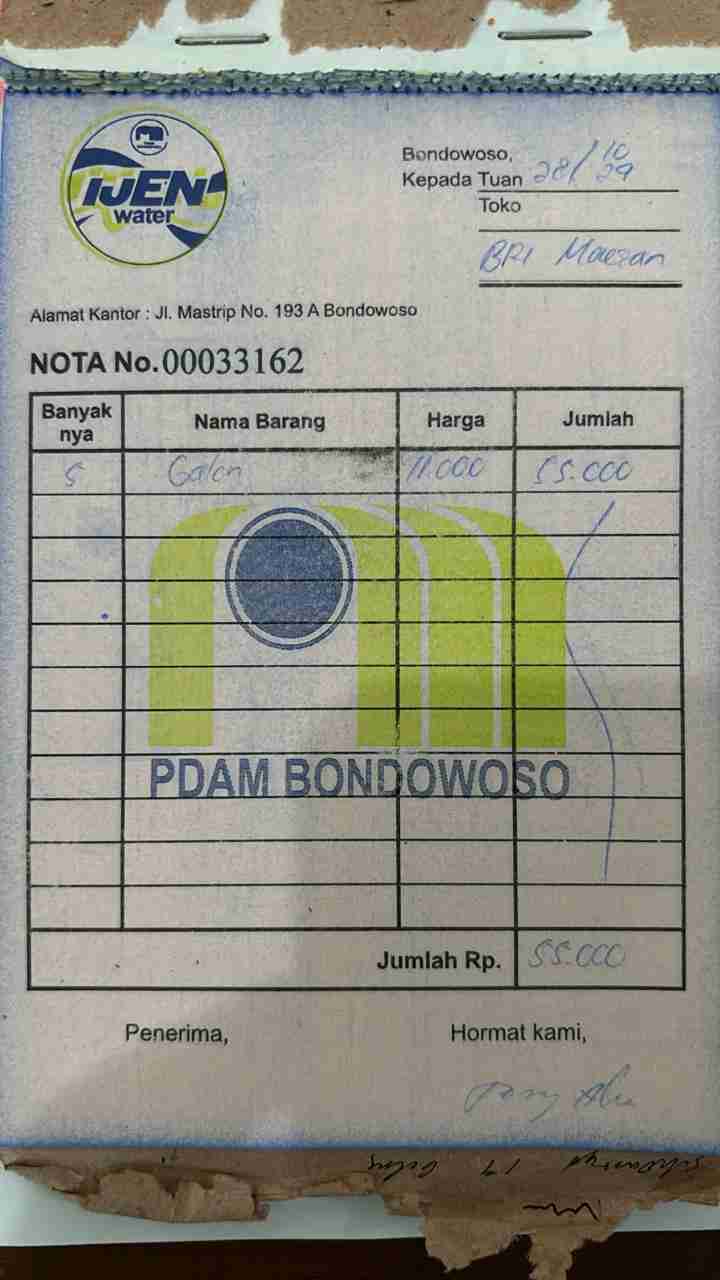 IJEN
water
Bondowoso, 28/10
Kepada Tuan 29
Toko
BRI Maesan
Alamat Kantor : Jl. Mastrip No. 193 A Bondowoso
NOTA No. 00033162
Banyak nya Nama Barang Harga Jumlah
5 Galon 11.000 55.000
PDAM BONDOWOSO
Jumlah Rp. 55.000
Penerima, Hormat kami,